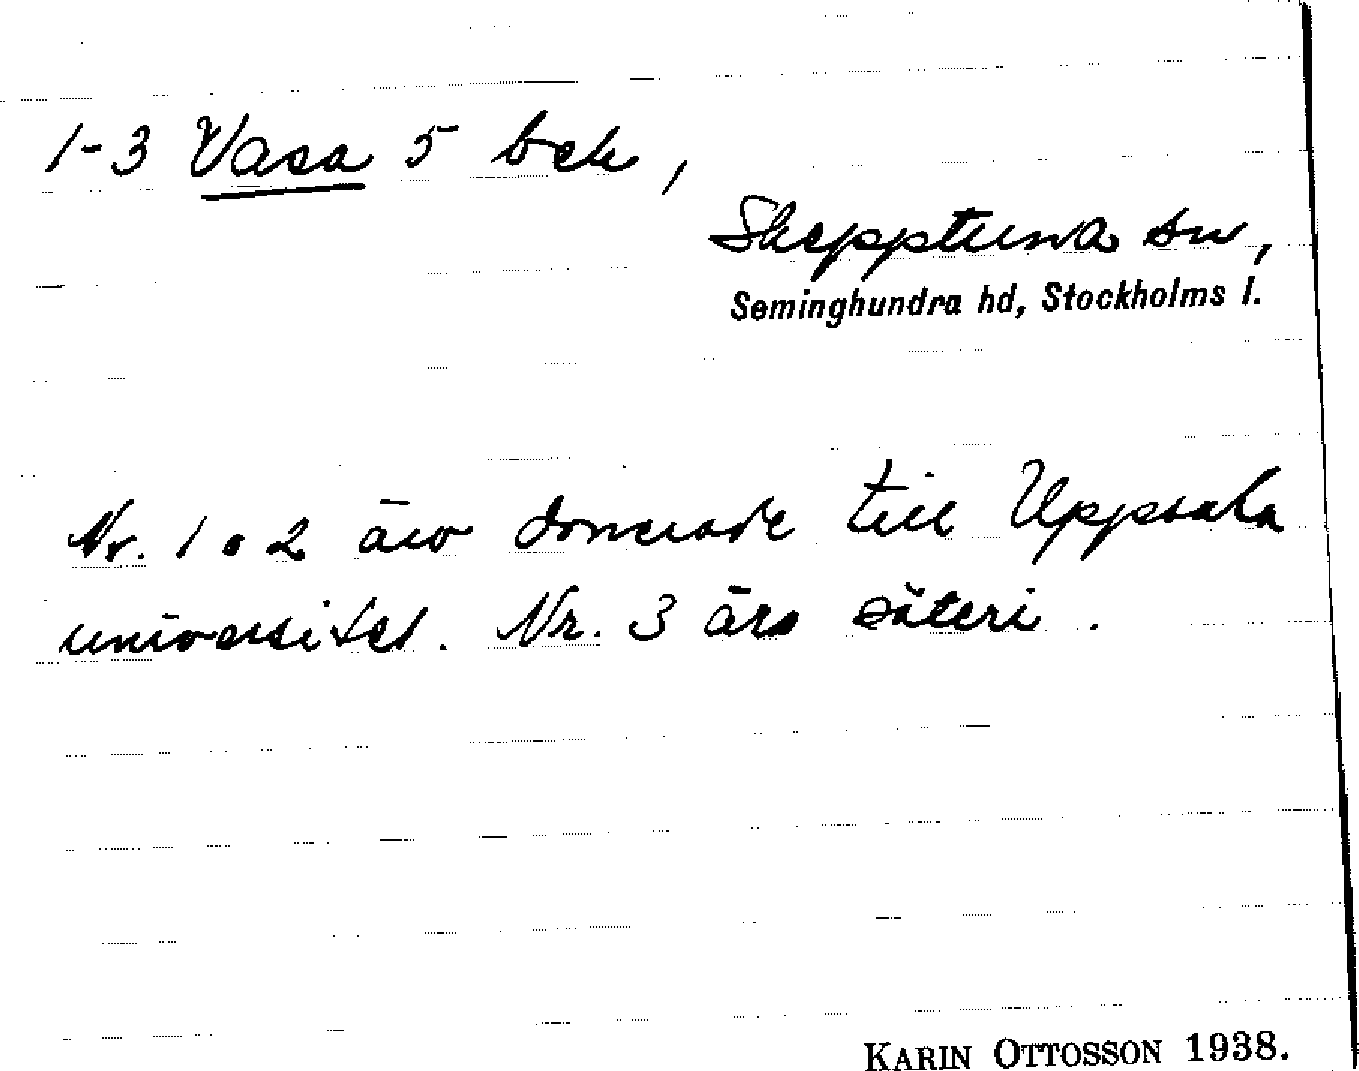 1-3 Vasa 5 bek,
Skepptuna sn,
Seminghundra hd, Stockholms l.
Nr. 1 o 2 äro donerade till Uppsala
universitet. Nr. 3 äro säteri.
KARIN OTTOSSON 1938.